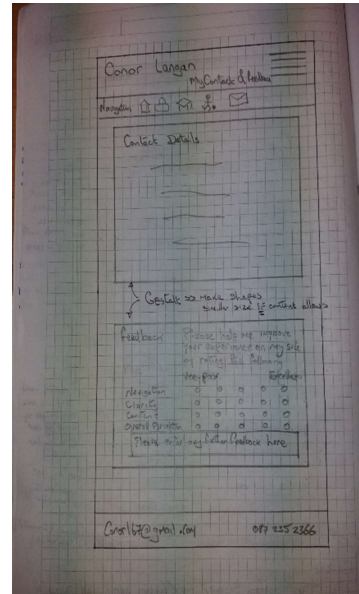 Conor Langan
My Contact & Feedback
Navigation
Contact Details
Gestalt => Make shapes
similar size if content allows
Feedback Please help me improve
your experience on my site
by rating the following
Very poor
Navigation
Clarity
Content
Overall
Please enter any further feedback here
087 235 2366